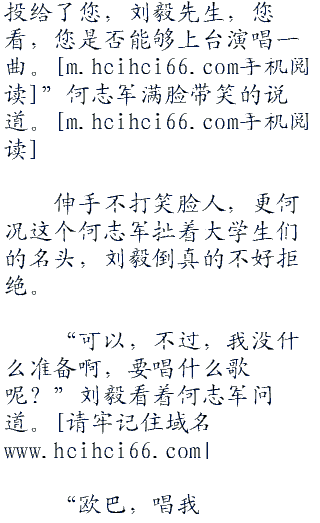 投给了您，刘毅先生，您
看，您是否能够上台演唱一
曲。[m.hcihci66.com手机阅
读]”何志军满脸带笑的说
道。[m.hcihci66.com手机阅
读]
伸手不打笑脸人，更何
况这个何志军扯着大学生们
的名头，刘毅倒真的不好拒
绝。
“可以，不过，我没什
么准备啊，要唱什么歌
呢？”刘毅看着何志军问
道。[请牢记住域名
www.hcihci66.com|
“欧巴，唱我